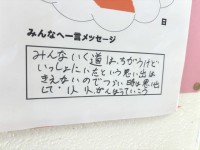 日
みんなへ一言メッセージ
みんないく道は、ちがうけど
いっしょにいたという思い出は
きえないのでつらい時は思い出
して、1人1人がんばっていこう